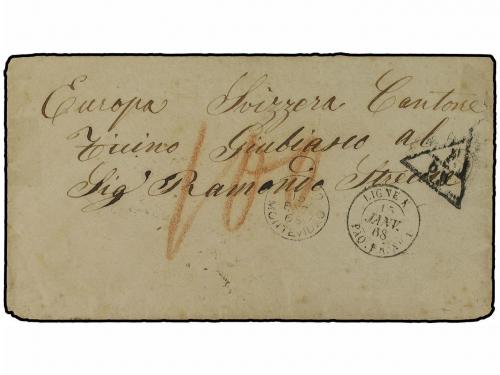 Europa Svizzera Cantone
Ticino Giubiasco al
Sig Ramondo
MONTEVIDEO
LIGNE K
15
JANV.
68
PAQ. FR. Nº 1